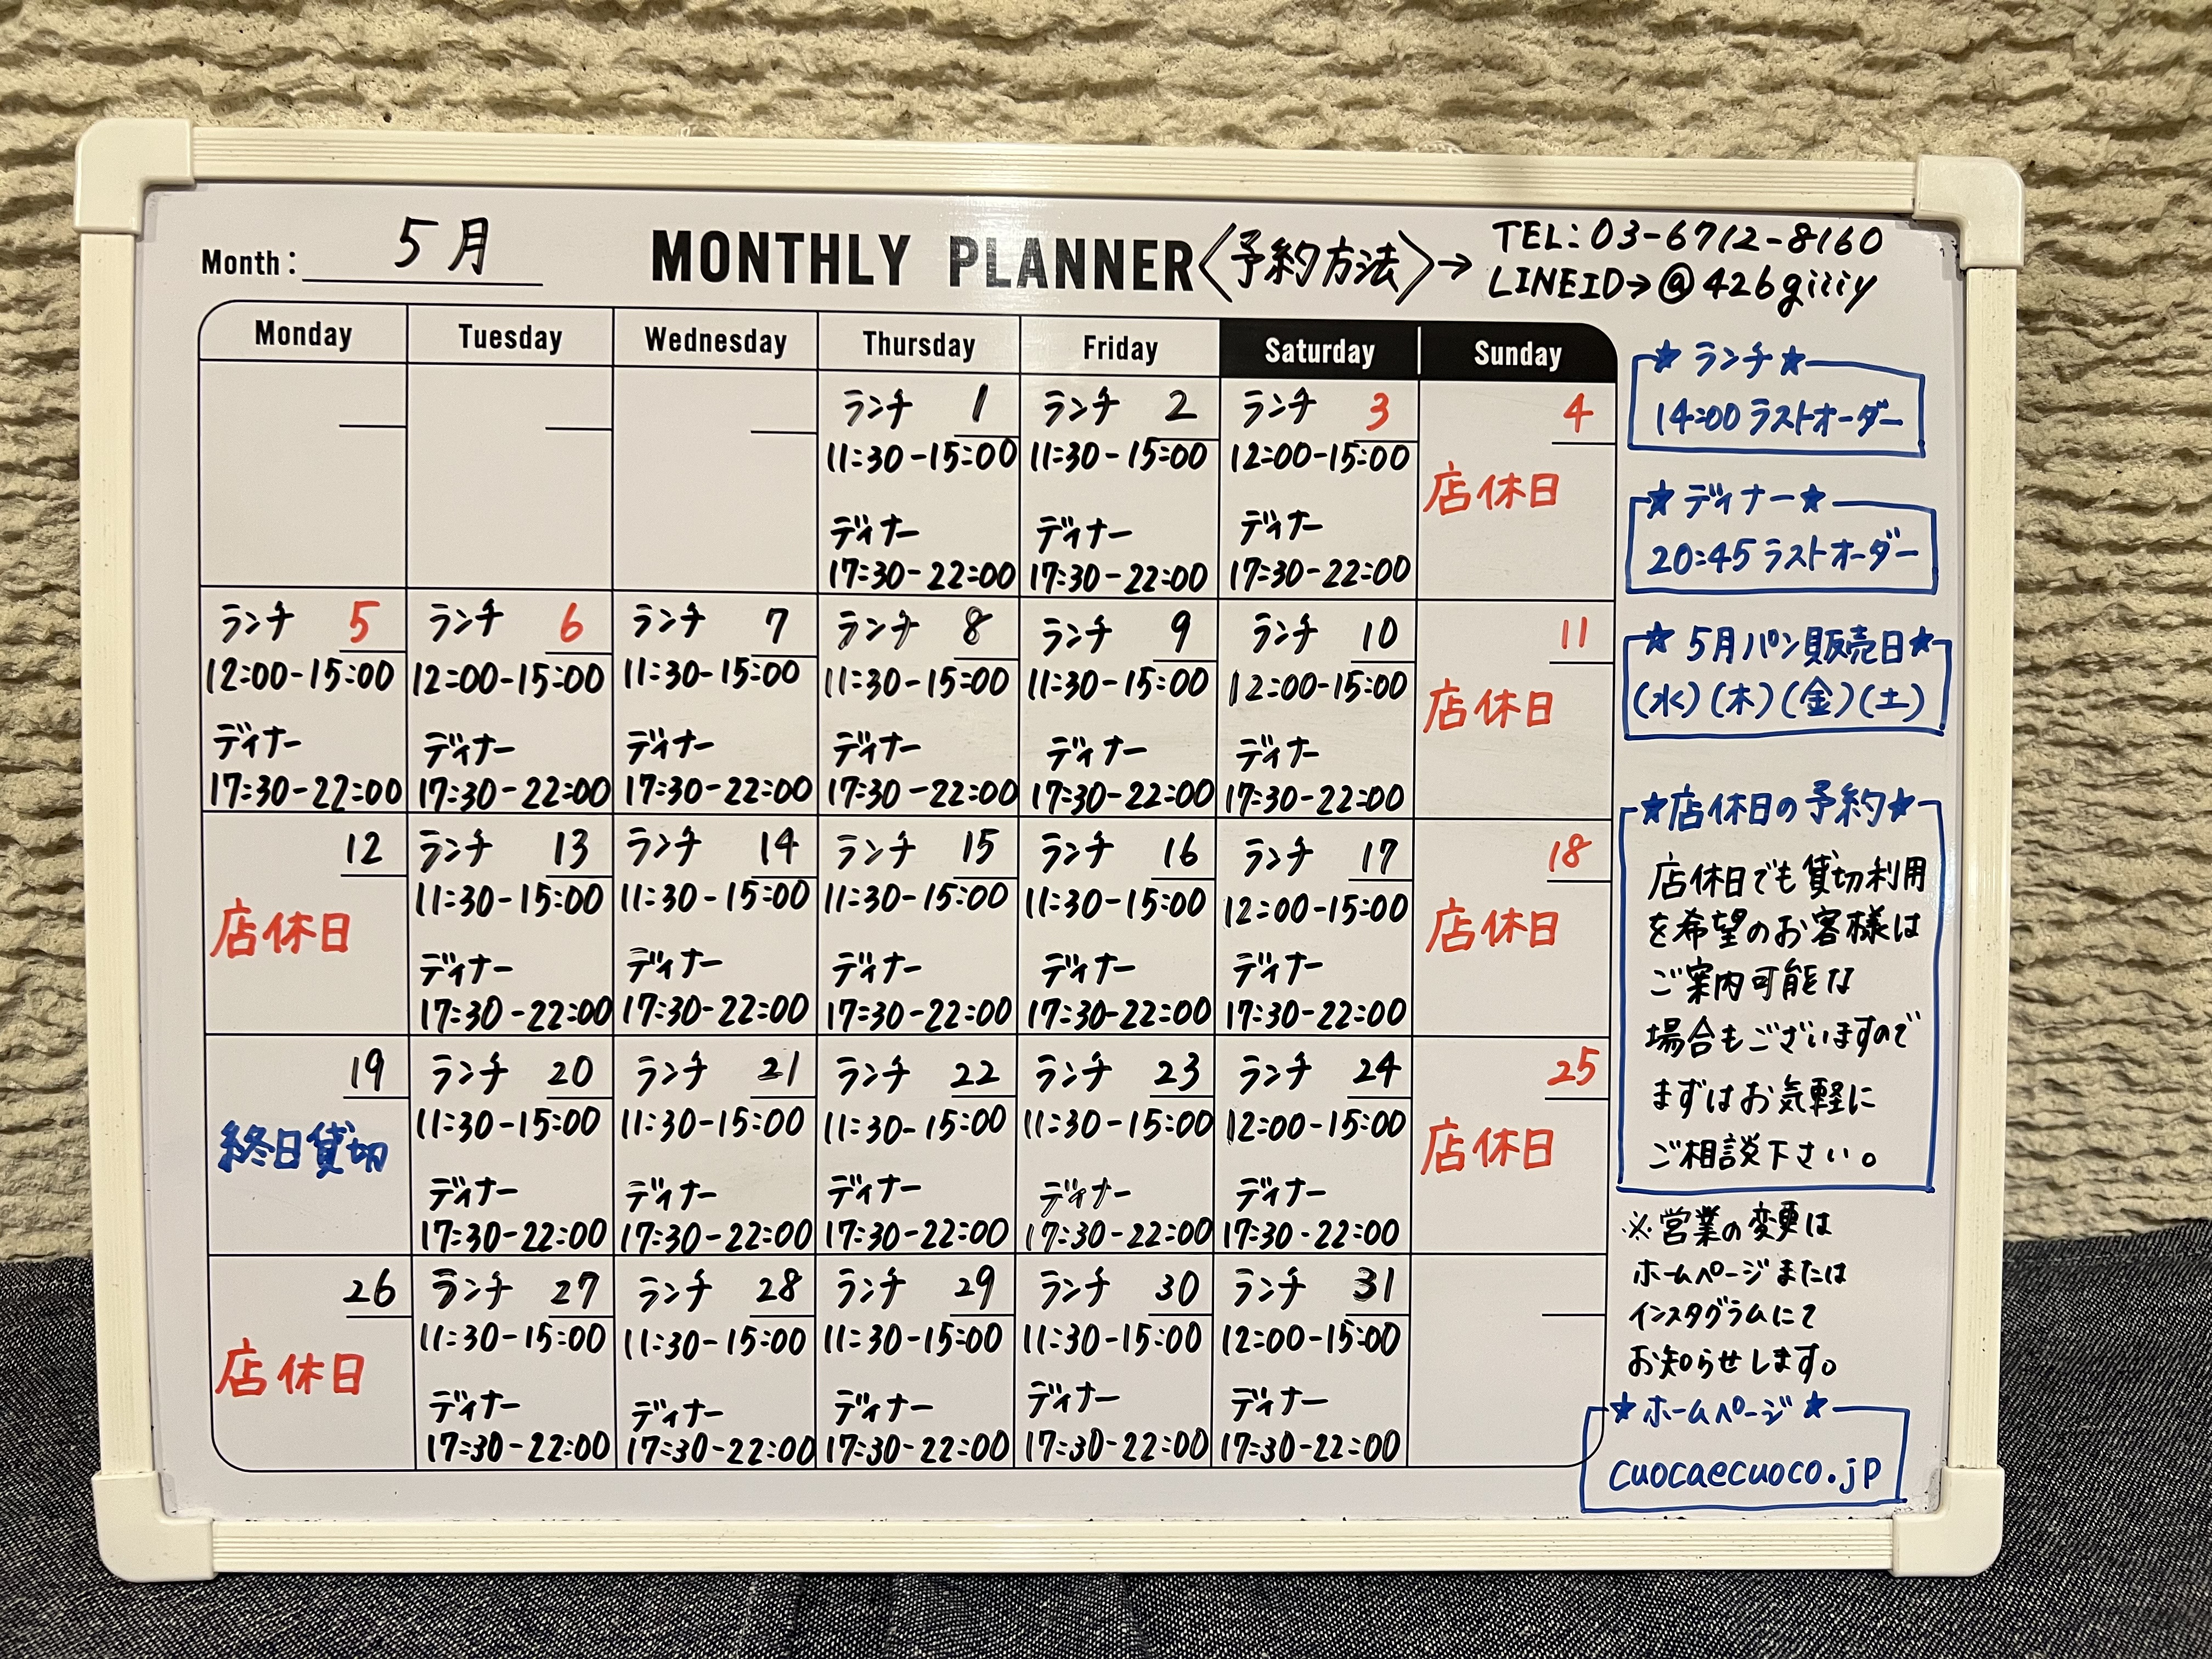 Month: 5月
MONTHLY PLANNER
〈予約方法〉→
TEL:03-6712-8160
LINEID→@426giiiy
Monday Tuesday Wednesday Thursday Friday Saturday Sunday
ランチ 1 ランチ 2 ランチ 3 4
11:30-15:00 11:30-15:00 12:00-15:00
店休日
ディナー ディナー ディナー
17:30-22:00 17:30-22:00 17:30-22:00
ランチ 5 ランチ 6 ランチ 7 ランチ 8 ランチ 9 ランチ 10 11
12:00-15:00 12:00-15:00 11:30-15:00 11:30-15:00 11:30-15:00 12:00-15:00
店休日
ディナー ディナー ディナー ディナー ディナー ディナー
17:30-22:00 17:30-22:00 17:30-22:00 17:30-22:00 17:30-22:00 17:30-22:00
12 ランチ 13 ランチ 14 ランチ 15 ランチ 16 ランチ 17 18
11:30-15:00 11:30-15:00 11:30-15:00 11:30-15:00 12:00-15:00
店休日 店休日
ディナー ディナー ディナー ディナー ディナー
17:30-22:00 17:30-22:00 17:30-22:00 17:30-22:00 17:30-22:00
19 ランチ 20 ランチ 21 ランチ 22 ランチ 23 ランチ 24 25
11:30-15:00 11:30-15:00 11:30-15:00 11:30-15:00 12:00-15:00
終日貸切 店休日
ディナー ディナー ディナー ディナー ディナー
17:30-22:00 17:30-22:00 17:30-22:00 17:30-22:00 17:30-22:00
26 ランチ 27 ランチ 28 ランチ 29 ランチ 30 ランチ 31
11:30-15:00 11:30-15:00 11:30-15:00 11:30-15:00 12:00-15:00
店休日
ディナー ディナー ディナー ディナー ディナー
17:30-22:00 17:30-22:00 17:30-22:00 17:30-22:00 17:30-22:00
★ランチ★
14:00 ラストオーダー
★ディナー★
20:45 ラストオーダー
★5月パン販売日★
(水)(木)(金)(土)
★店休日の予約★
店休日でも貸切利用
を希望のお客様は
ご案内可能な
場合もございますので
まずはお気軽に
ご相談下さい。
※営業の変更は
ホームページまたは
インスタグラムにて
お知らせします。
★ホームページ★
cuocaecuoco.jp